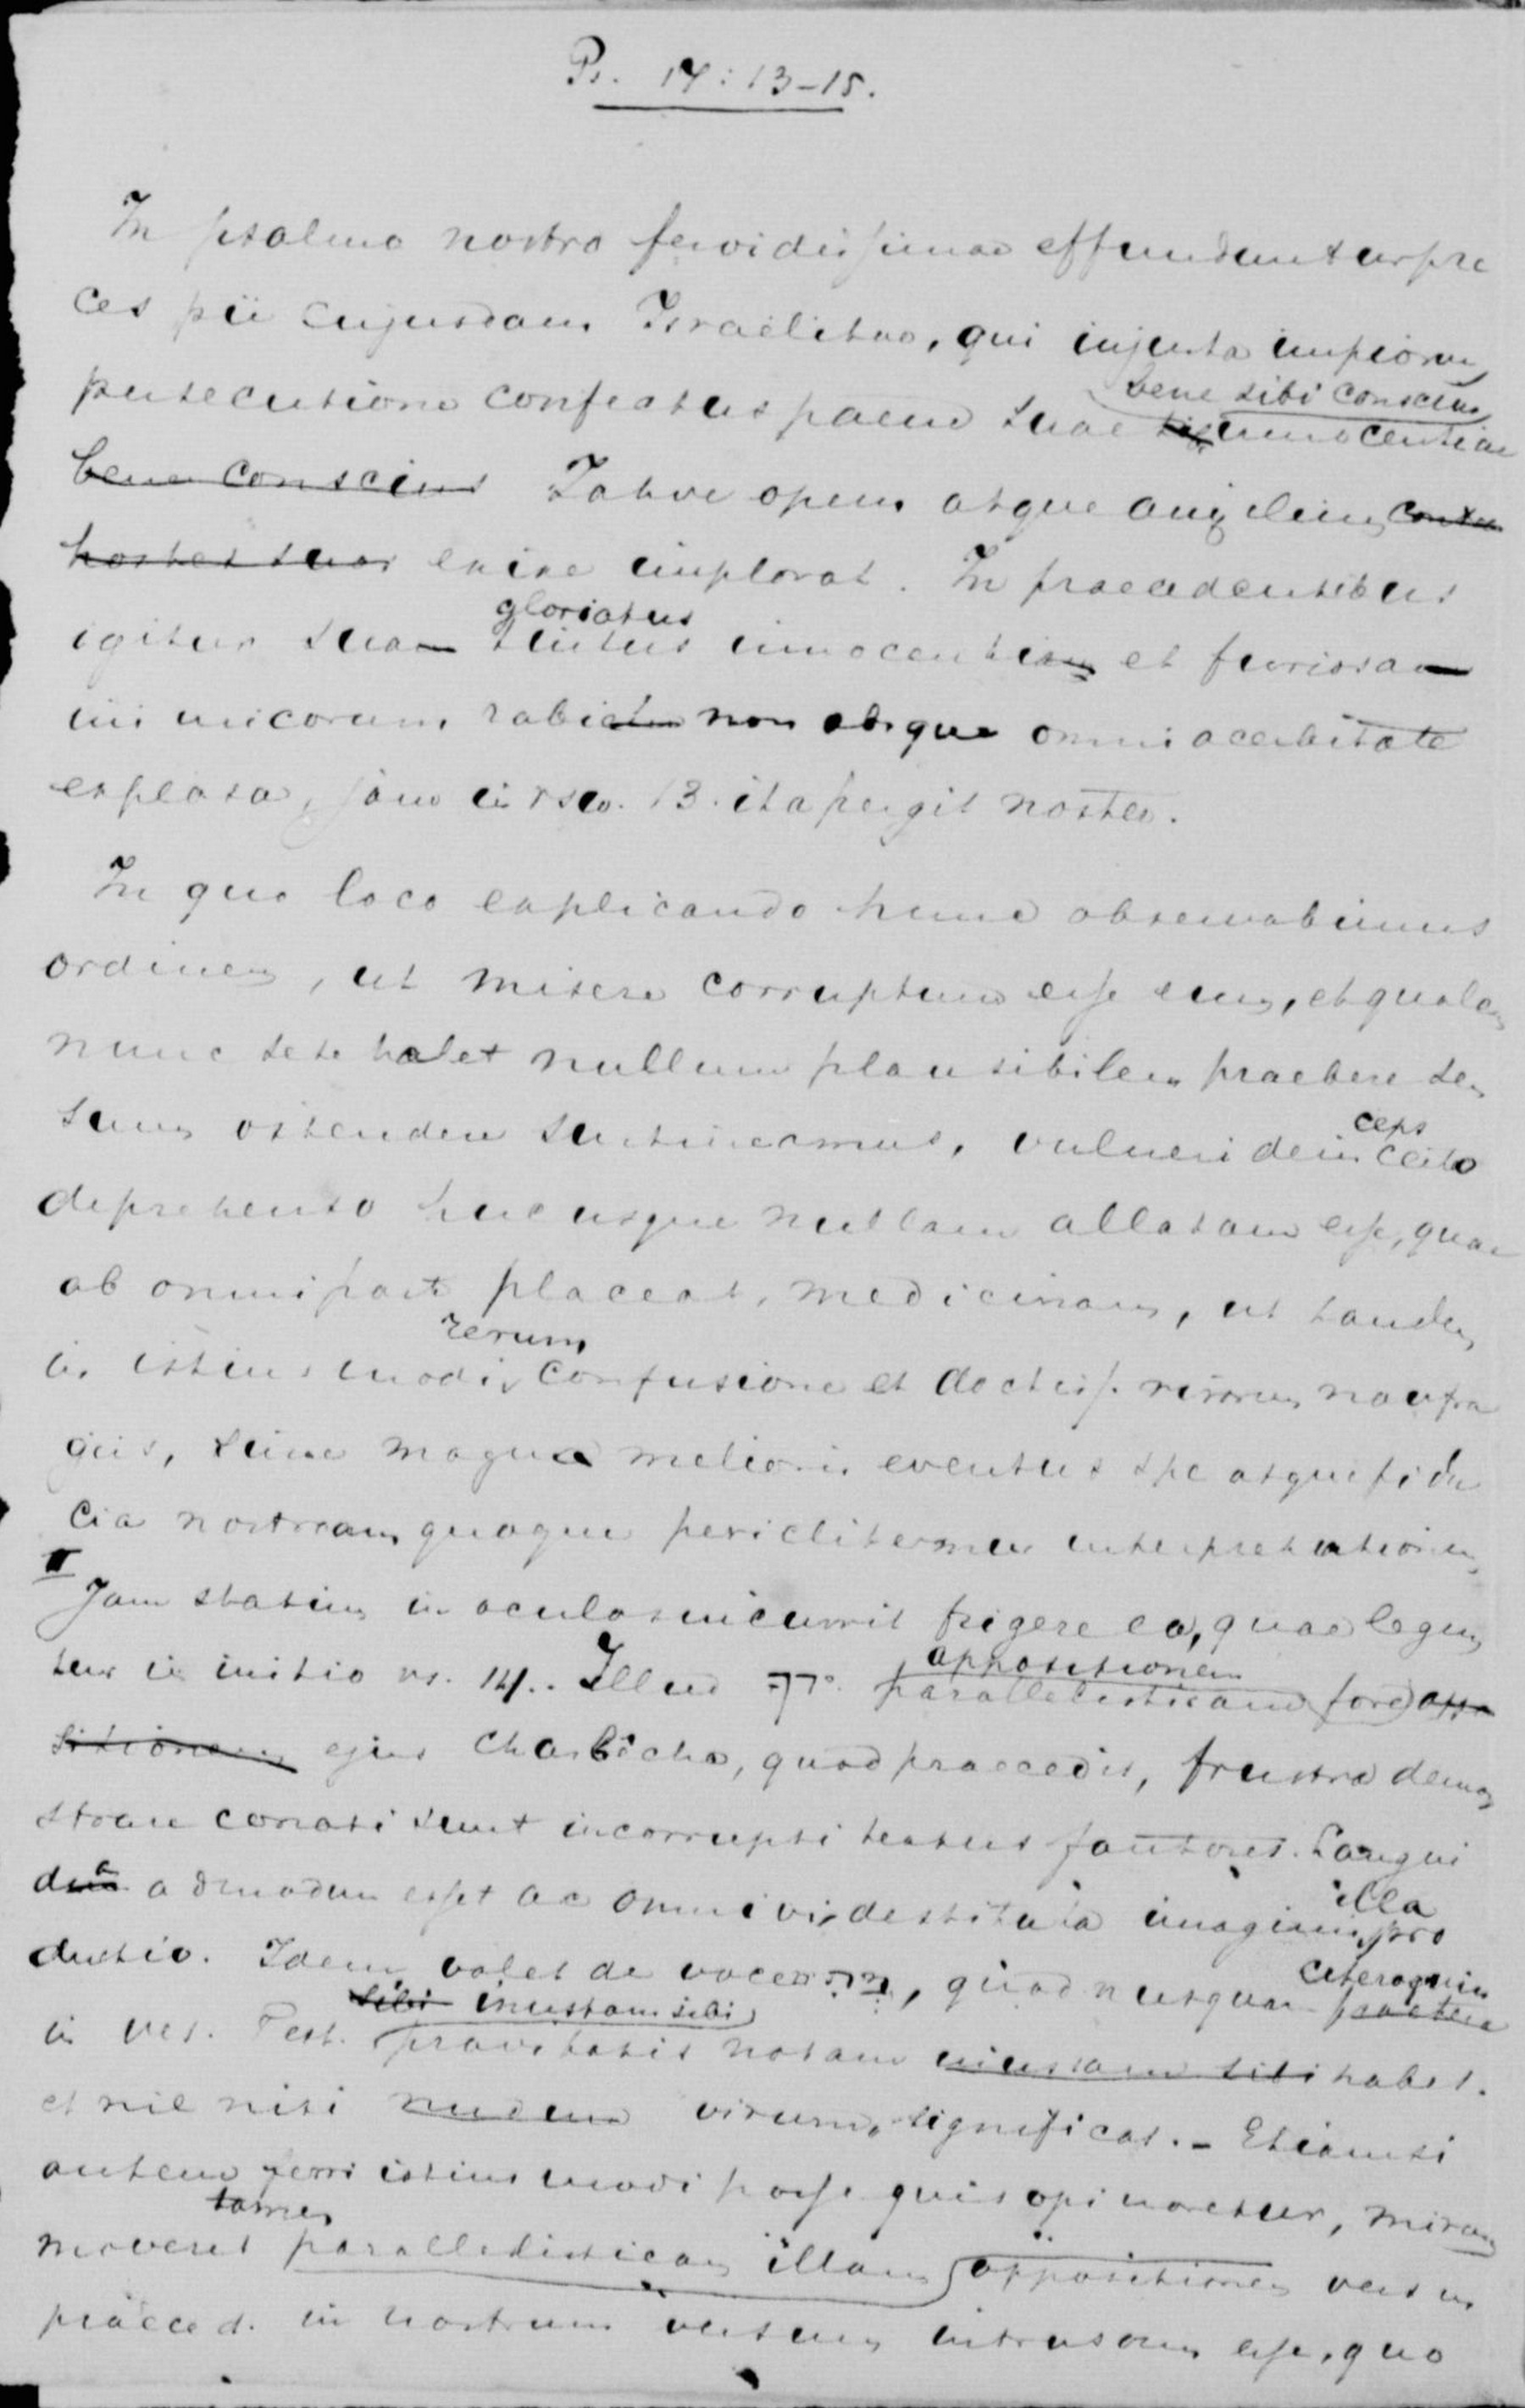 Ps. 17:13-15.
In psalmo nostro fervidissimae effunduntur pre
ces pii cujusdam Israëlitae, qui injusta impiorum
bene sibi conscius
persecutione confectus paene suae innocentiae
bene conscius Jahve opem atque auxilium contra
hostes suos enixe implorat. In praecedentibus
gloriatus
igitur sua innocentia et furiosa
inimicorum rabie non absque omni acerbitate
explosa, jam in vso. 13. ita pergit noster.
In quo loco explicando hunc observabimus
ordinem, ut misere corruptum esse eum, et qualem
nunc sese habet nullum plausibilem praebere sen
sum ostendere sustineamus, vulneri dein certo
ceps
deprehenso hucusque nullam allatam esse, quae
ab omni parte placeat, medicinam, ut tandem
rerum
in istiusmodi confusione et doctiss. virorum naufra
giis, sine magna melioris eventus spe atque fidu
cia nostram quoque periclitemur interpretationem
II
Jam statim in oculos incurrit frigere ea, quae legun
tur in initio vs. 14. Illud ידך
appositionem
parallelisticam fore appo
sitionem ejus charbecha, quod praecedit, frustra demon
strare conati sunt incorrupti textus fautores. Langui
da admodum esset ac omni vi destituta imaginis pro
illa
ductio. Idem valet de voce, quod nusquam praeterea
ceteroquin
in Vet. Test. pravitatis notam inustam sibi habet.
sibi inustam sibi
et nil nisi nudum virum significat. - Etiamsi
autem ferri istiusmodi posse quis opinaretur, mirum
tamen
moveret parallelisticam illam appositionem versus
praeced. in nostrum versum intrusam esse, quo